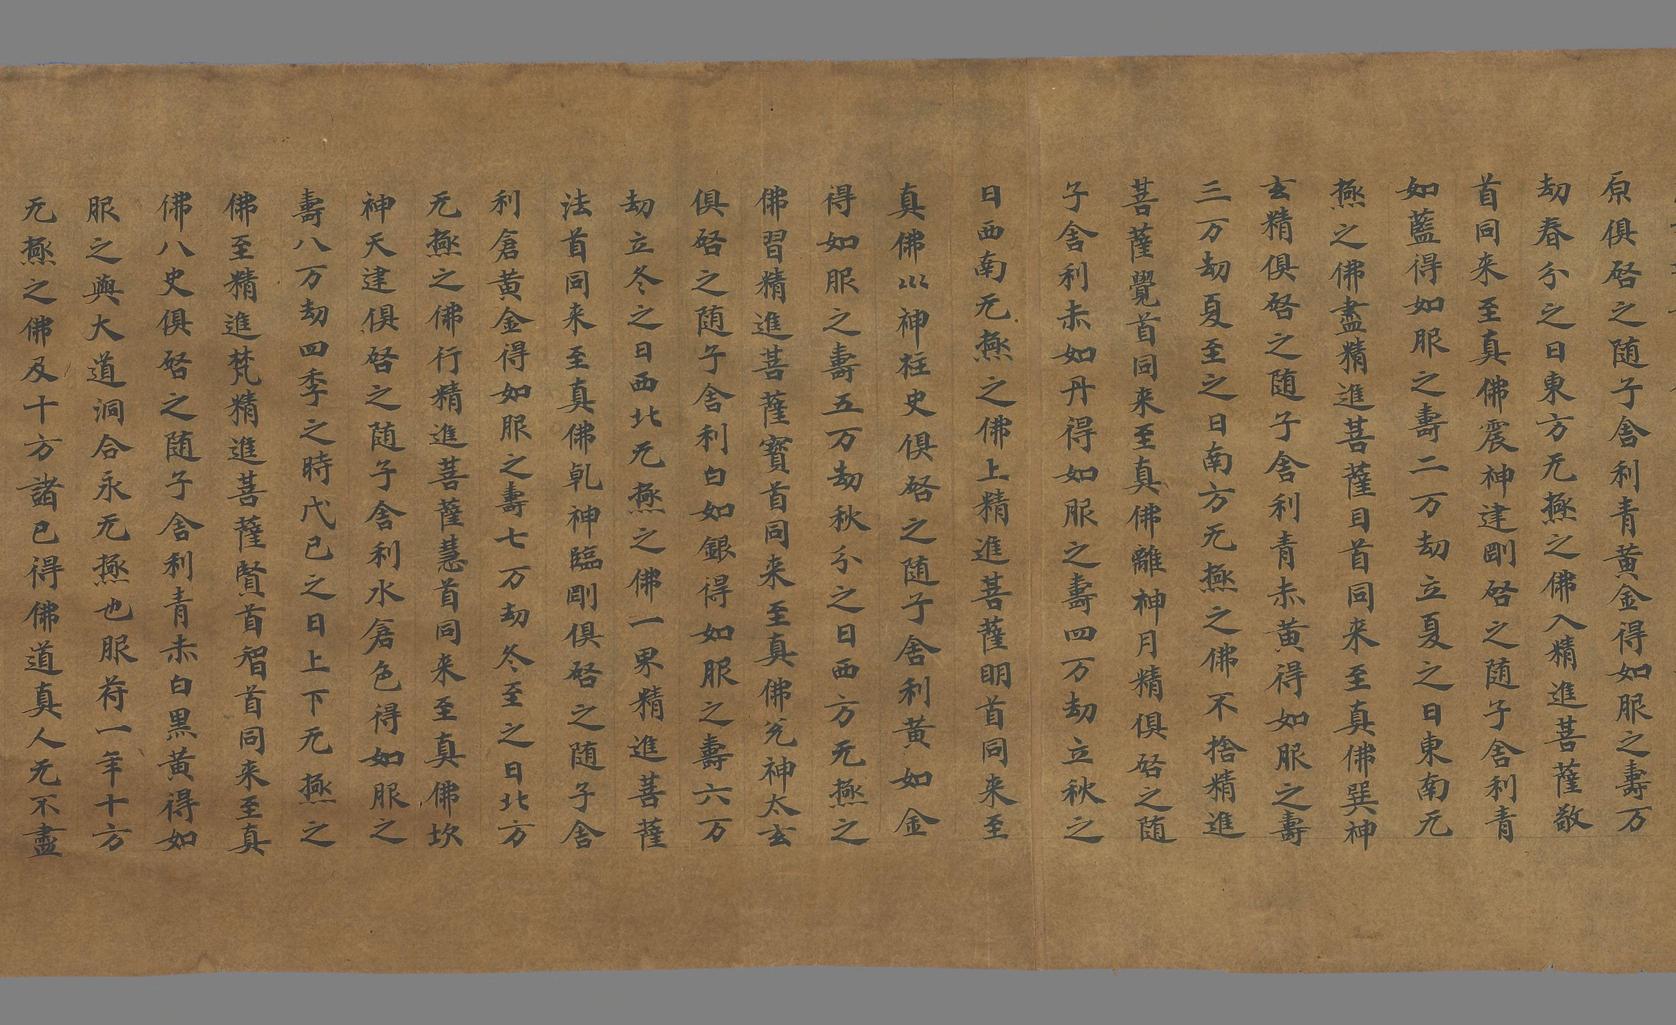 原俱啓之随子舍利青黄金得如服之壽万
劫春分之日東方无極之佛入精進菩薩敬
首同来至真佛震神建剛啓之随子舍利青
如藍得如服之壽二万劫立夏之日東南无
極之佛盡精進菩薩目首同来至真佛巽神
玄精俱啓之随子舍利青赤黄得如服之壽
三万劫夏至之日南方无極之佛不捨精進
菩薩覺首同来至真佛離神月精俱啓之随
子舍利赤如丹得如服之壽四万劫立秋之
日西南无極之佛上精進菩薩明首同来至
真佛神柱史俱啓之随子舍利黄如金
得如服之壽五万劫秋分之日西方无極之
佛習精進菩薩寳首同来至真佛兊神太玄
俱啓之随子舍利白如銀得如服之壽六万
劫立冬之日西北无極之佛一界精進菩薩
法首同来至真佛乹神臨剛俱啓之随子舍
利倉黄金得如服之壽七万劫冬至之日北方
无極之佛行精進菩薩慧首同来至真佛坎
神天建俱啓之随子舍利水倉色得如服之
壽八万劫四季之時戊己之日上下无極之
佛至精進梵精進菩薩賢首智首同来至真
佛八史俱啓之随子舍利青赤白黒黄得如
服之與大道洞合永无極也服符一年十方
无極之佛及十方諸已得佛道真人无不盡